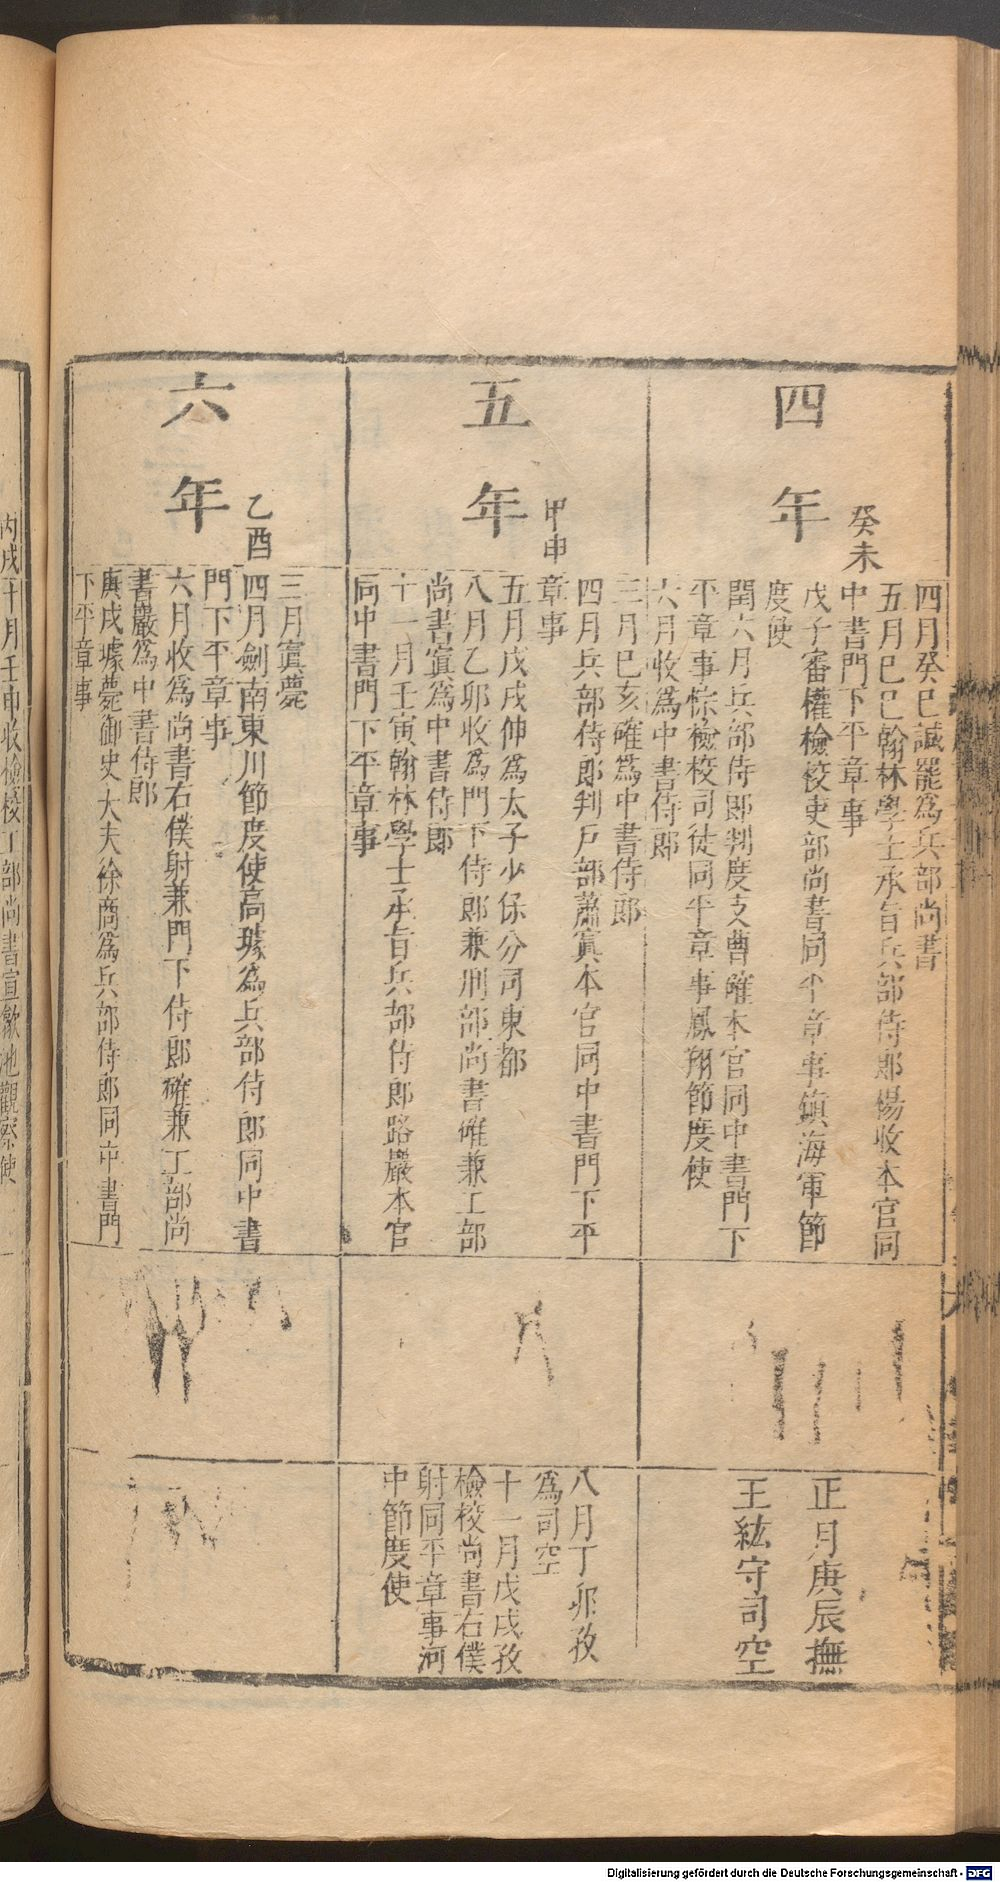 四年
癸未
四月癸巳諴罷爲兵部尚書
五月己巳翰林學士承旨兵部侍郎楊收本官同
中書門下平章事
戊子審權檢校吏部尚書同平章事鎭海軍節
度使
閏六月兵部侍郎判度支曹確本官同中書門下
平章事悰檢校司徒同平章事鳳翔節度使
六月收爲中書侍郎
正月庚辰撫
王紘守司空
五年
甲申
三月己亥確爲中書侍郎
四月兵部侍郎判戶部蕭寘本官同中書門下平
章事
五月戊戌伸爲太子少保分司東都
八月乙卯收爲門下侍郎兼刑部尚書確兼工部
尚書寘爲中書侍郎
十一月壬寅翰林學士承旨兵部侍郎路巖本官
同中書門下平章事
八月丁卯孜
爲司空
十一月戊戌孜
檢校尚書右僕
射同平章事河
中節度使
六年
乙酉
三月寘薨
四月劍南東川節度使高璩爲兵部侍郎同中書
門下平章事
六月收爲尚書右僕射兼門下侍郎確兼工部尚
書巖爲中書侍郎
庚戌璩薨御史大夫徐商爲兵部侍郎同中書門
下平章事
丙戌十月壬申收檢校工部尚書宣歙池觀察使
Digitalisierung gefördert durch die Deutsche Forschungsgemeinschaft - DFG